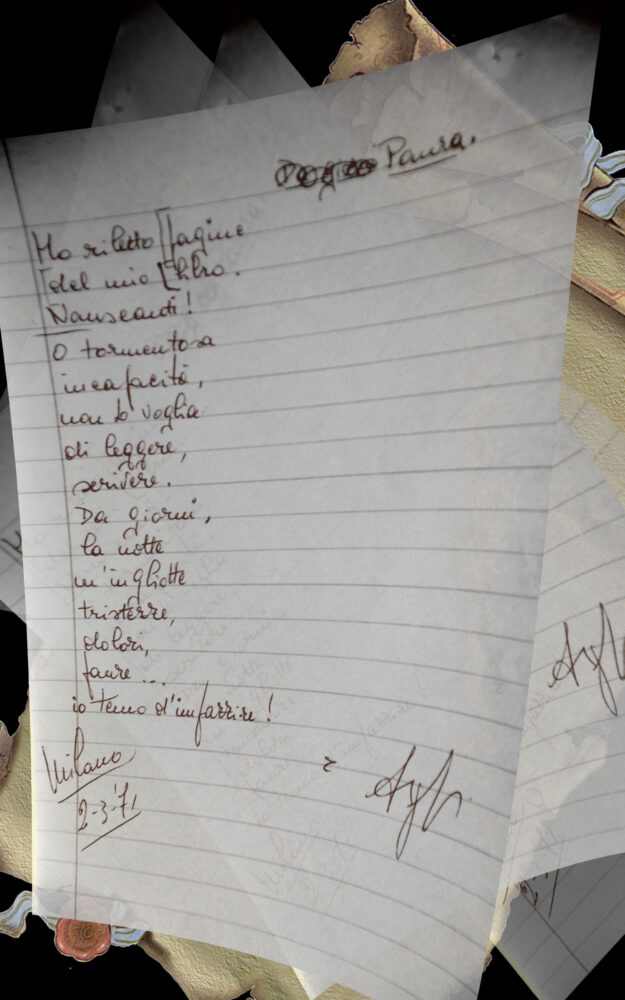 Paura.
Ho riletto [pagine
[del mio [libro.
Nauseanti!
O tormentosa
incapacità,
non ho voglia
di leggere,
scrivere.
Da giorni,
la notte
m'inghiotte
tristezze,
dolori,
paure...
io temo d'impazzire!
Milano
2-3-71